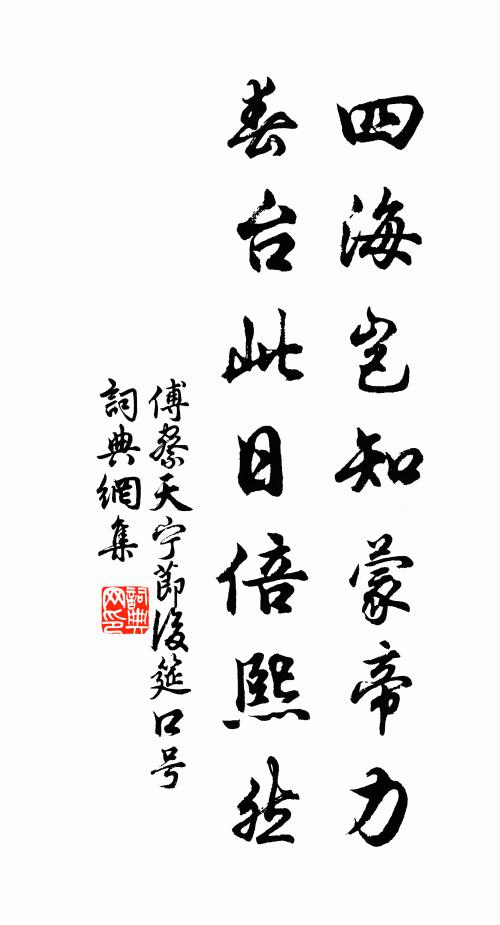 四海岂知蒙帝力
春台此日倍熙然
傅察天宁節後筵口号
詞典網集
詞典网印